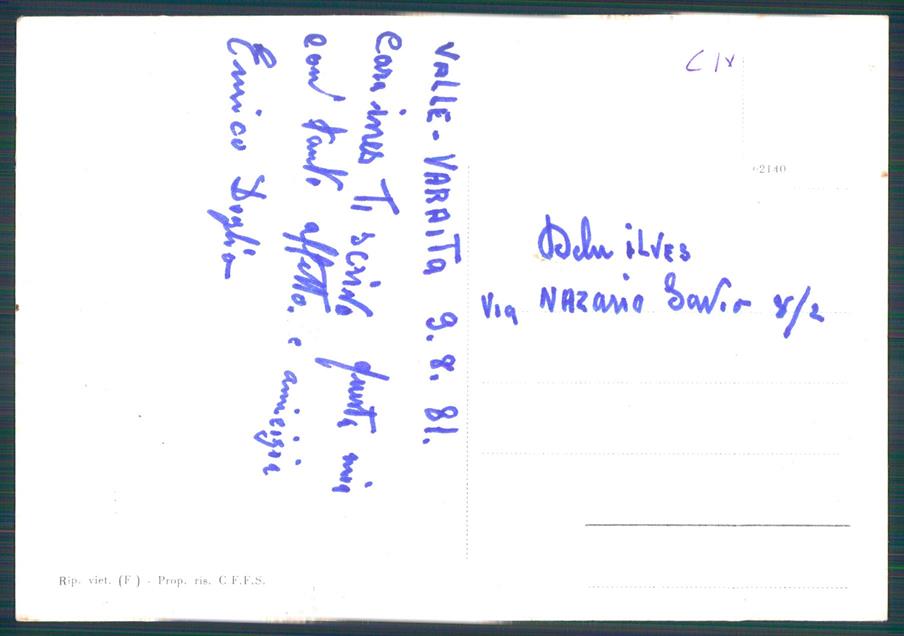 VALLE - VARAITA 9. 8. 81.
Cara ines Ti scrivo questa mia
con tanto affetto. e amicizia
Enrico Doglio
C
62140
iLVES
Via NAZARIO Savio 8/2
Rip. viet. (F) - Prop. ris. C F.F.S.